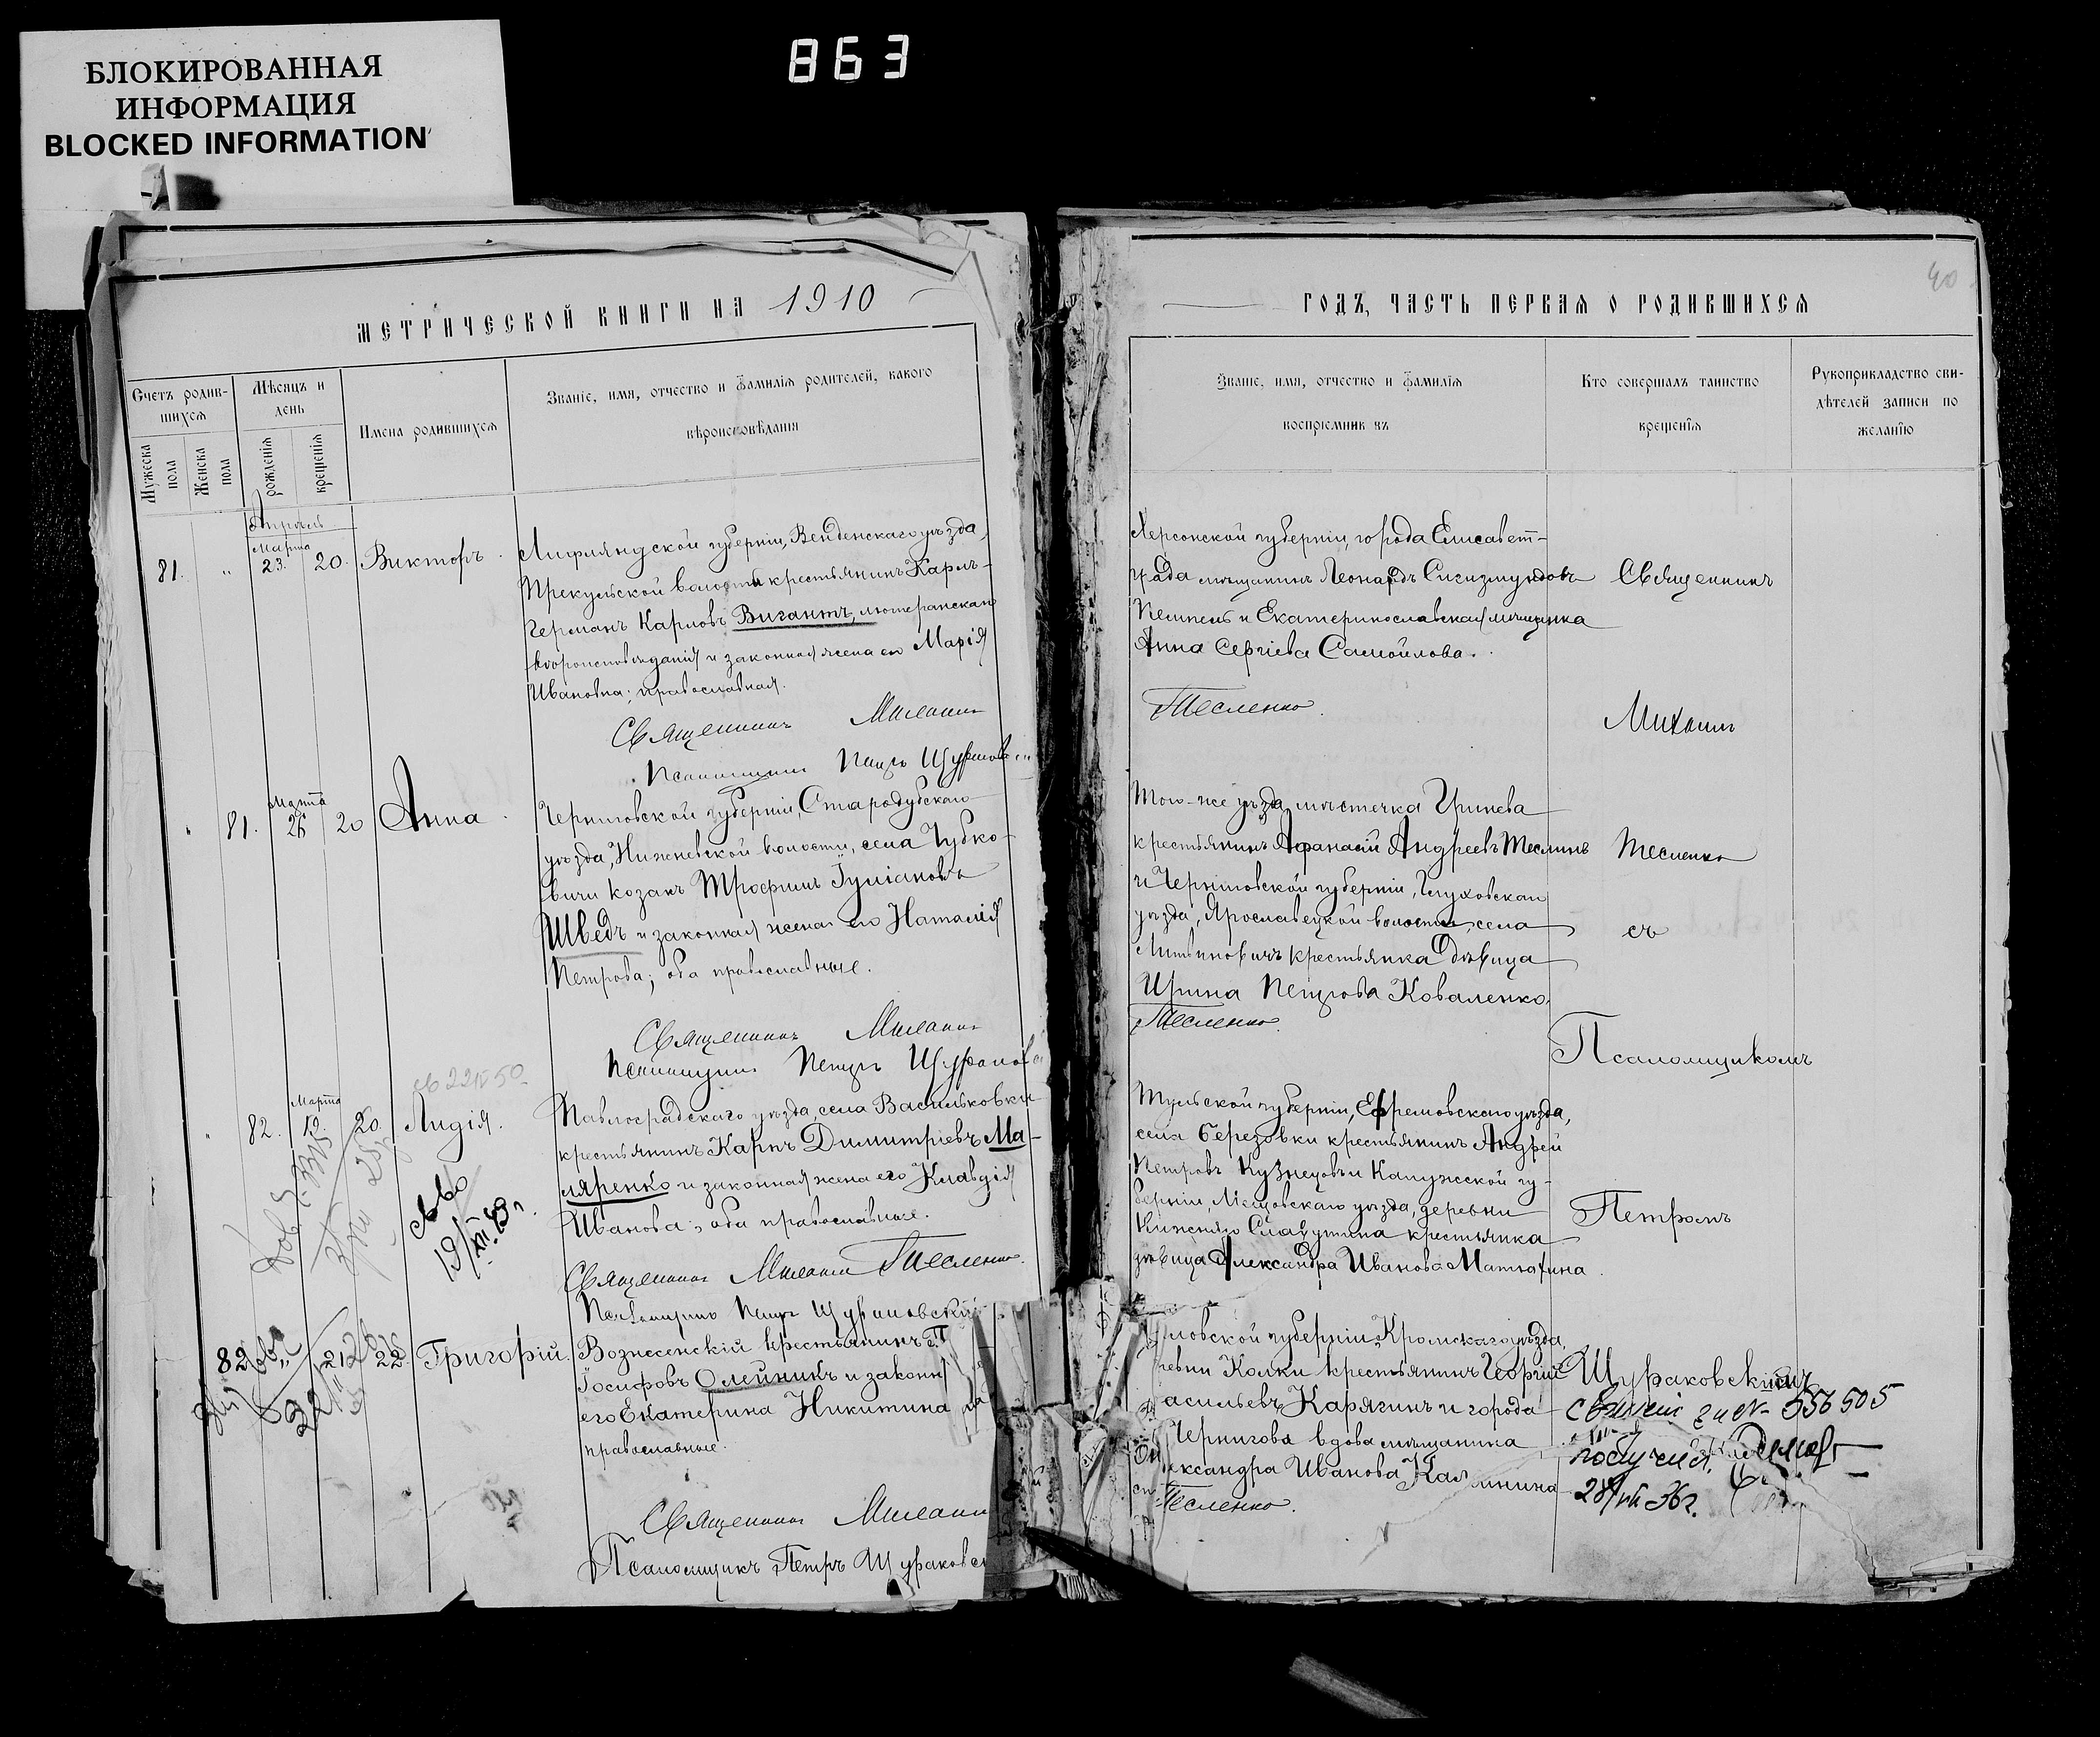 БЛОКИРОВАННАЯ
ИНФОРМАЦИЯ
BLOCKED INFORMATION
863
МЕТРИЧЕСКОЙ КНИГИ НА 1910
Счетъ родив-
шихся
Мужеска пола
Женска пола
Мѣсяцъ и
день
рожденія
крещенія
Имена родившихся
Званіе, имя, отчество и фамилія родителей, какого
вѣроисповѣданія
Апрель
Марта
81. " 23. 20. Викторъ.
Лифляндской губерніи, Венденскаго уѣзда,
Прекульской волости крестьянинъ Карлъ-
Германъ Карловъ Вигантъ, лютеранскаго
вѣроисповѣданія и законная жена его Марія
Ивановна; православная.
Священникъ Михаилъ
Псаломщикъ Петръ
Марта
81. 26 20 Анна.
Черниговской губерніи, Стародубскаго
уѣзда, Нижневской волости, села Чубко-
вичи козакъ Трофимъ Іуліановъ
Шведъ и законная жена его Наталія
Петрова; оба православные.
Священникъ Михаилъ
Псаломщикъ Петръ
Марта
82. 19. 20. Лидія.
19/XII 43 г.
Павлоградскаго уѣзда, села Васильковки
крестьянинъ Карпъ Димитріевъ Ма-
ляренко и законная жена его Клавдія
Иванова; оба православные.
Священникъ Михаилъ Тесленко.
Псаломщикъ Петръ Щураковскій
82 21 22. Григорій.
Вознесенскій крестьянинъ
Іосифовъ Олейникъ и законн
его Екатерина Никитина
православные.
Священникъ Михаилъ
Псаломщикъ Петръ Щураковск
40
ГОДЪ, ЧАСТЬ ПЕРВАЯ О РОДИВШИХСЯ
Званіе, имя, отчество и фамилія
воспріемниковъ
Кто совершалъ таинство
крещенія
Рукоприкладство сви-
дѣтелей записи по
желанію
Херсонской губерніи, города Елисавет-
града мѣщанинъ Леонардъ Сигизмундовъ
и Екатеринославская мѣщанка
Анна Сергіева Самойлова.
Тесленко.
Того-же уѣзда, мѣстечка Гринева
крестьянинъ Афанасій Андреевъ
и Черниговской губерніи, Глуховскаго
уѣзда, Ярославецкой волости, села
Литвиновичъ крестьянка дѣвица
Ирина Петрова Коваленко.
Тесленко.
Тульской губерніи, Ефремовскаго уѣзда,
села Березовки крестьянинъ Андрей
Петровъ Кузнецовъ и Калужской гу-
берніи, Мещовскаго уѣзда, деревни
крестьянка
дѣвица Александра Иванова
ловской губерніи, Кромскаго уѣзда,
ревни Колки крестьянинъ Георгій
асильевъ Карягинъ и города
Чернигова вдова мѣщанина
ександра Иванова
Тесленко.
Священникъ
Михаилъ
Тесленко
съ
Псаломщикомъ
Петромъ
Щураковскимъ
556505
получил
28/VII 36 г.